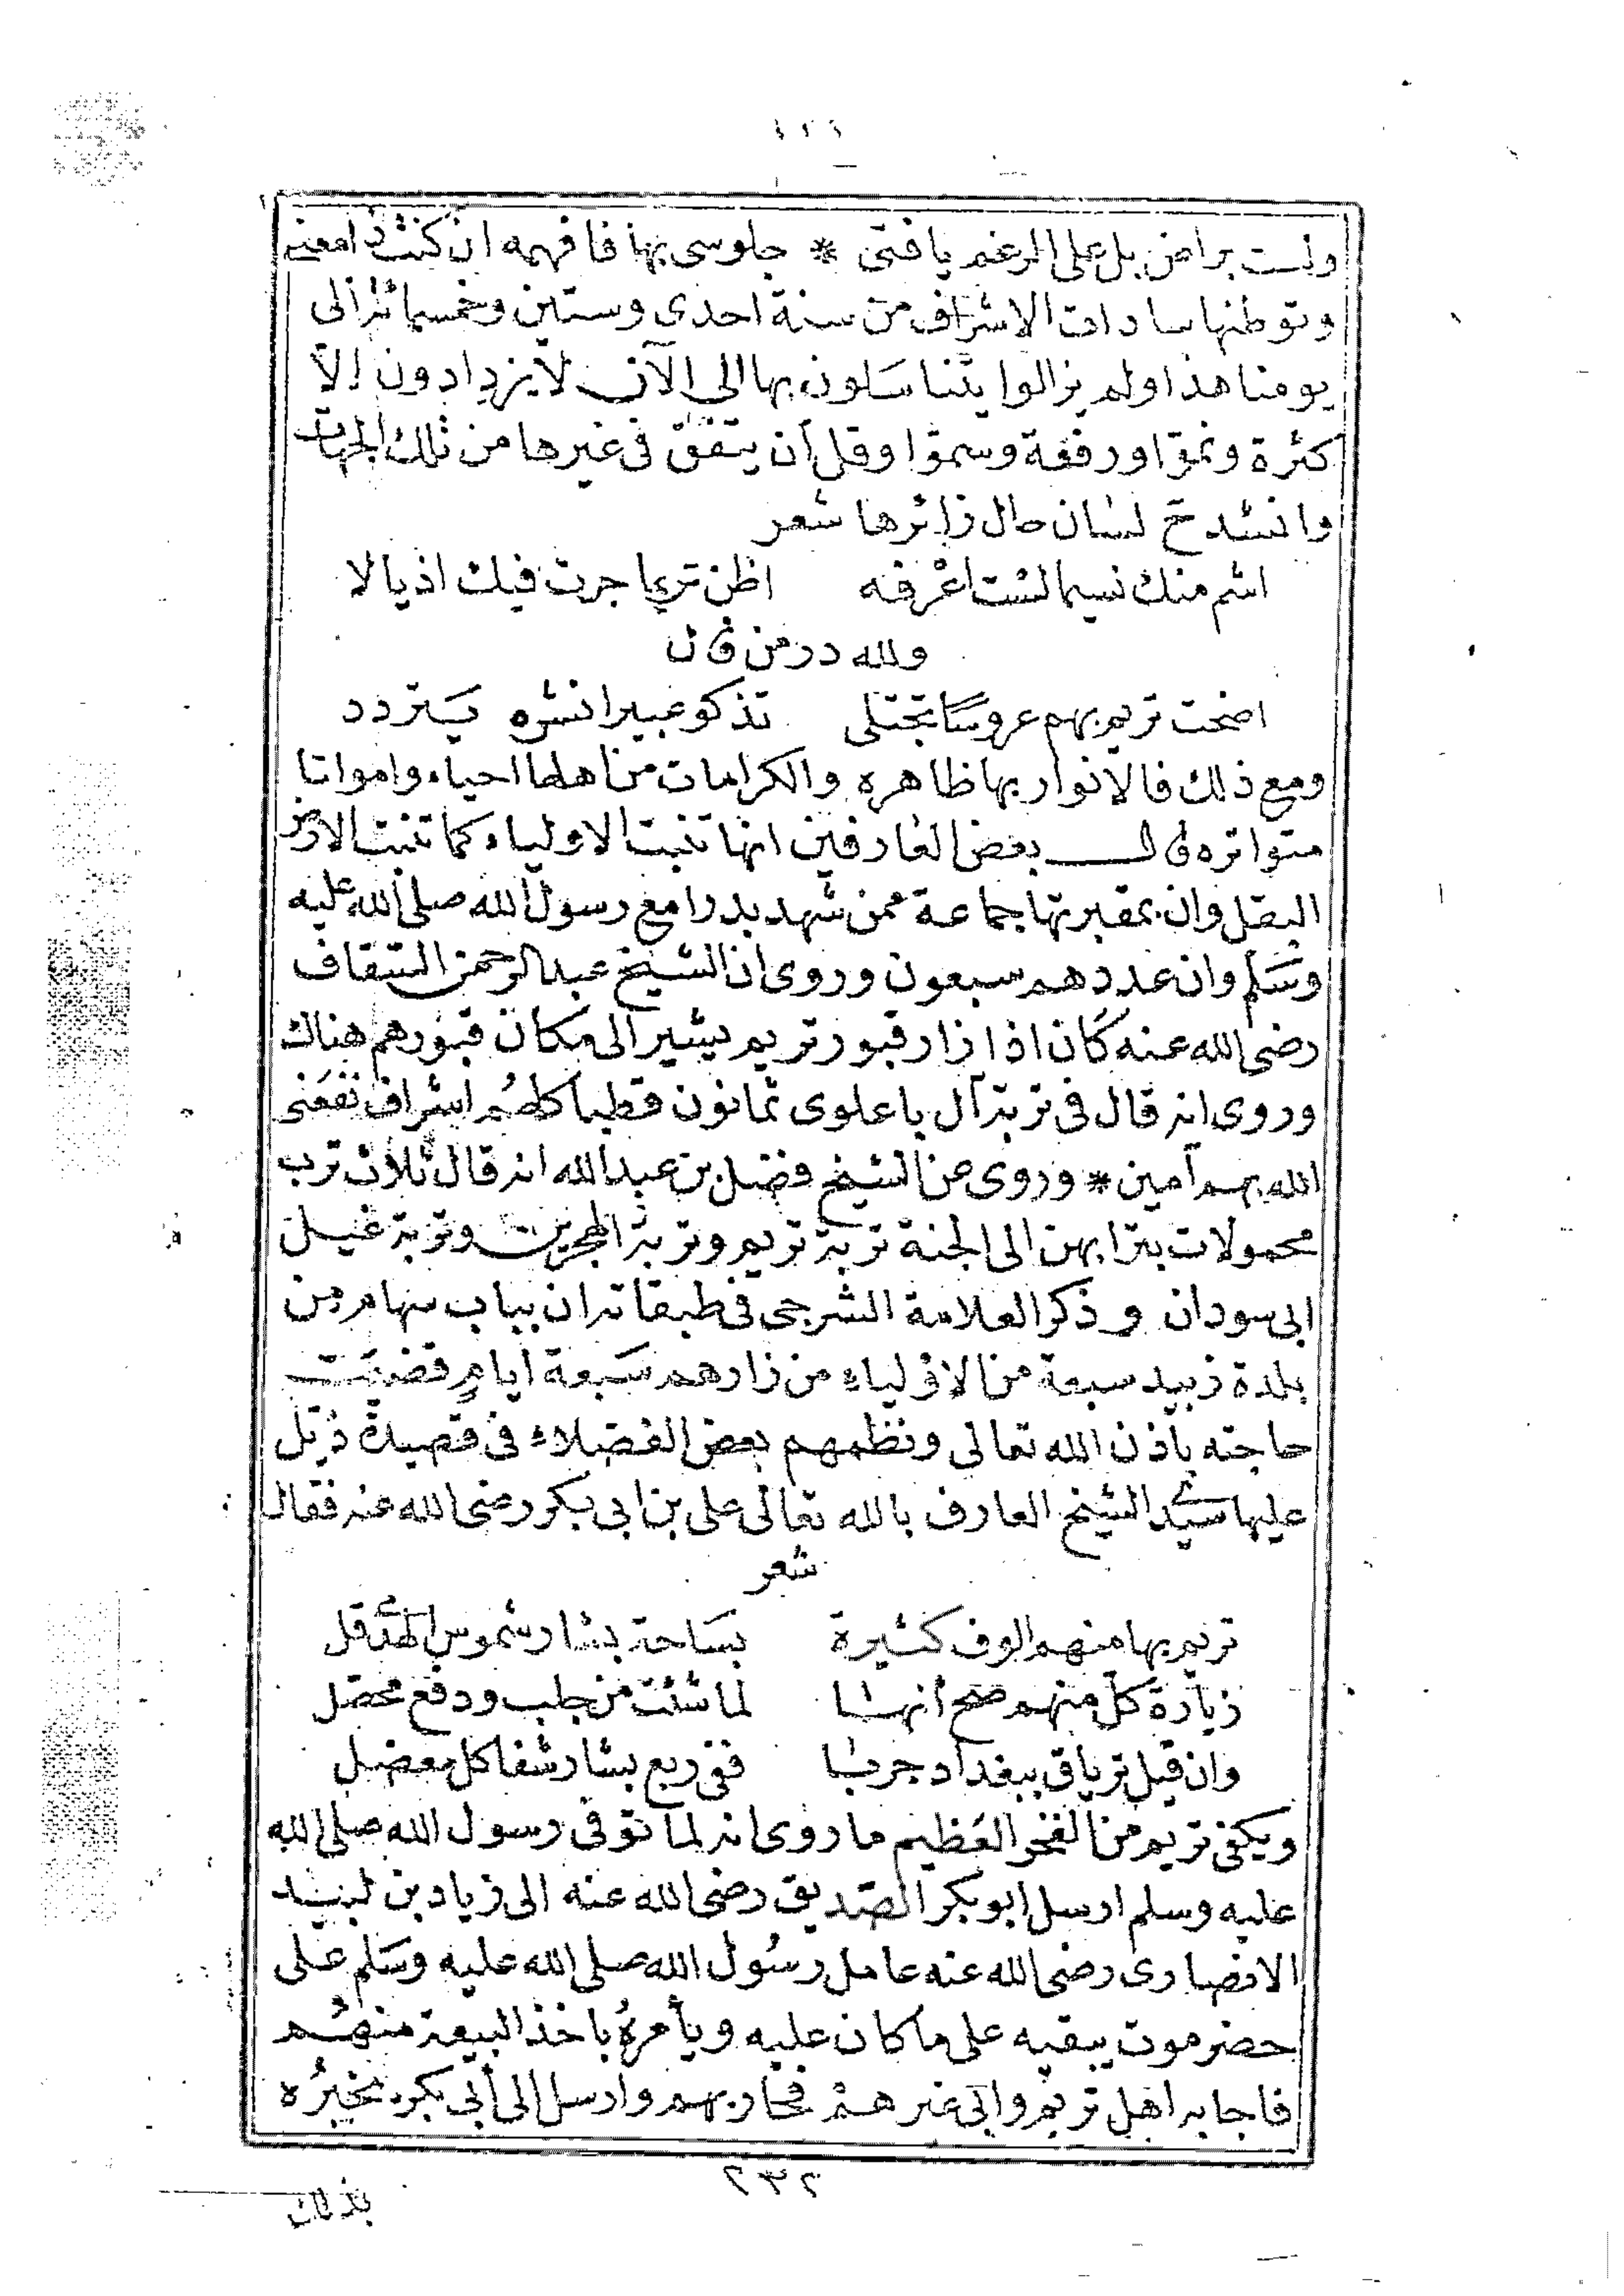 ولست براض بل على الرغم يا فتى * جلوسى بها فافهمه ان كنت ذا معنى
وتوطنها سادات الاشراف من سنة احدى وستين وخمسمائة الى
يومنا هذا ولم يزالوا يتناسلون بها الى الآن لا يزدادون إلا
كثرة ونموّا ورفعة وسموّا وقل أن يتفق فى غيرها من تلك الجهات
وانشد ح لسان حال زائرها شعر
اشم منك نسيما لست اعرفه اظن تريما جرت فيك اذيالا
ولله در من قال
اضحت تريم بهم عروسًا تجتلى تذكو عبيرا نشره يتردد
ومع ذلك فالانوار بها ظاهره والكرامات من اهلها احياء وامواتا
متواتره قال بعض العارفين انها تنبت الاولياء كما تنبت الارض
البقل وان بمقبرتها جماعة ممن شهد بدرا مع رسول الله صلى الله عليه
وسَلم وان عددهم سبعون وروى ان الشيخ عبد الرحمن السقاف
رضى الله عنه كان اذا زار قبور تريم يشير الى مكان قبورهم هناك
وروى انه قال فى تربة آل باعلوى ثمانون قطبا كلهُم اشراف نفعنى
الله بهم آمين * وروى عن الشيخ فضل بن عبد الله انه قال ثلاث ترب
محمولات بترابهن الى الجنة تربة تريم وتربة الهجرين وتربة غيل
ابى سودان وذكر العلامة الشرجى فى طبقاته ان بباب سهام من
بلدة زبيد سبعة من الاولياء من زارهم سَبعة أيامٍ قضيت
حاجته باذن الله تعالى ونظمهم بعض الفضلاء فى قصيدة ذيّل
عليها سيّدى الشيخ العارف بالله تعالى على بن ابى بكر رضى الله عنه فقال
شعر
تريم بها منهم الوف كثيرة بسَاحة بشار شموس الهدى قل
زيارة كلّ منهم صح أنها لما شئت من جلب ودفع محصل
وان قيل ترياق ببغداد جربا ففى ربع بشار شفا كل معضل
ويكفى تريم من الفخر العَظيم ما روى انه لما توفى رسول الله صلى الله
عليه وسلم ارسل ابو بكر الصّديق رضى الله عنه الى زياد بن لبيد
الانصارى رضى الله عنه عامل رسُول الله صلى الله عليه وسَلم على
حضرموت يبقيه على ما كان عليه ويأمرهُ باخذ البيعة منهُم
فاجابه اهل تريم وابى غيرهمْ فحاربهم وارسل الى أبى بكر يخبرُه
٢٣٢
بذلك